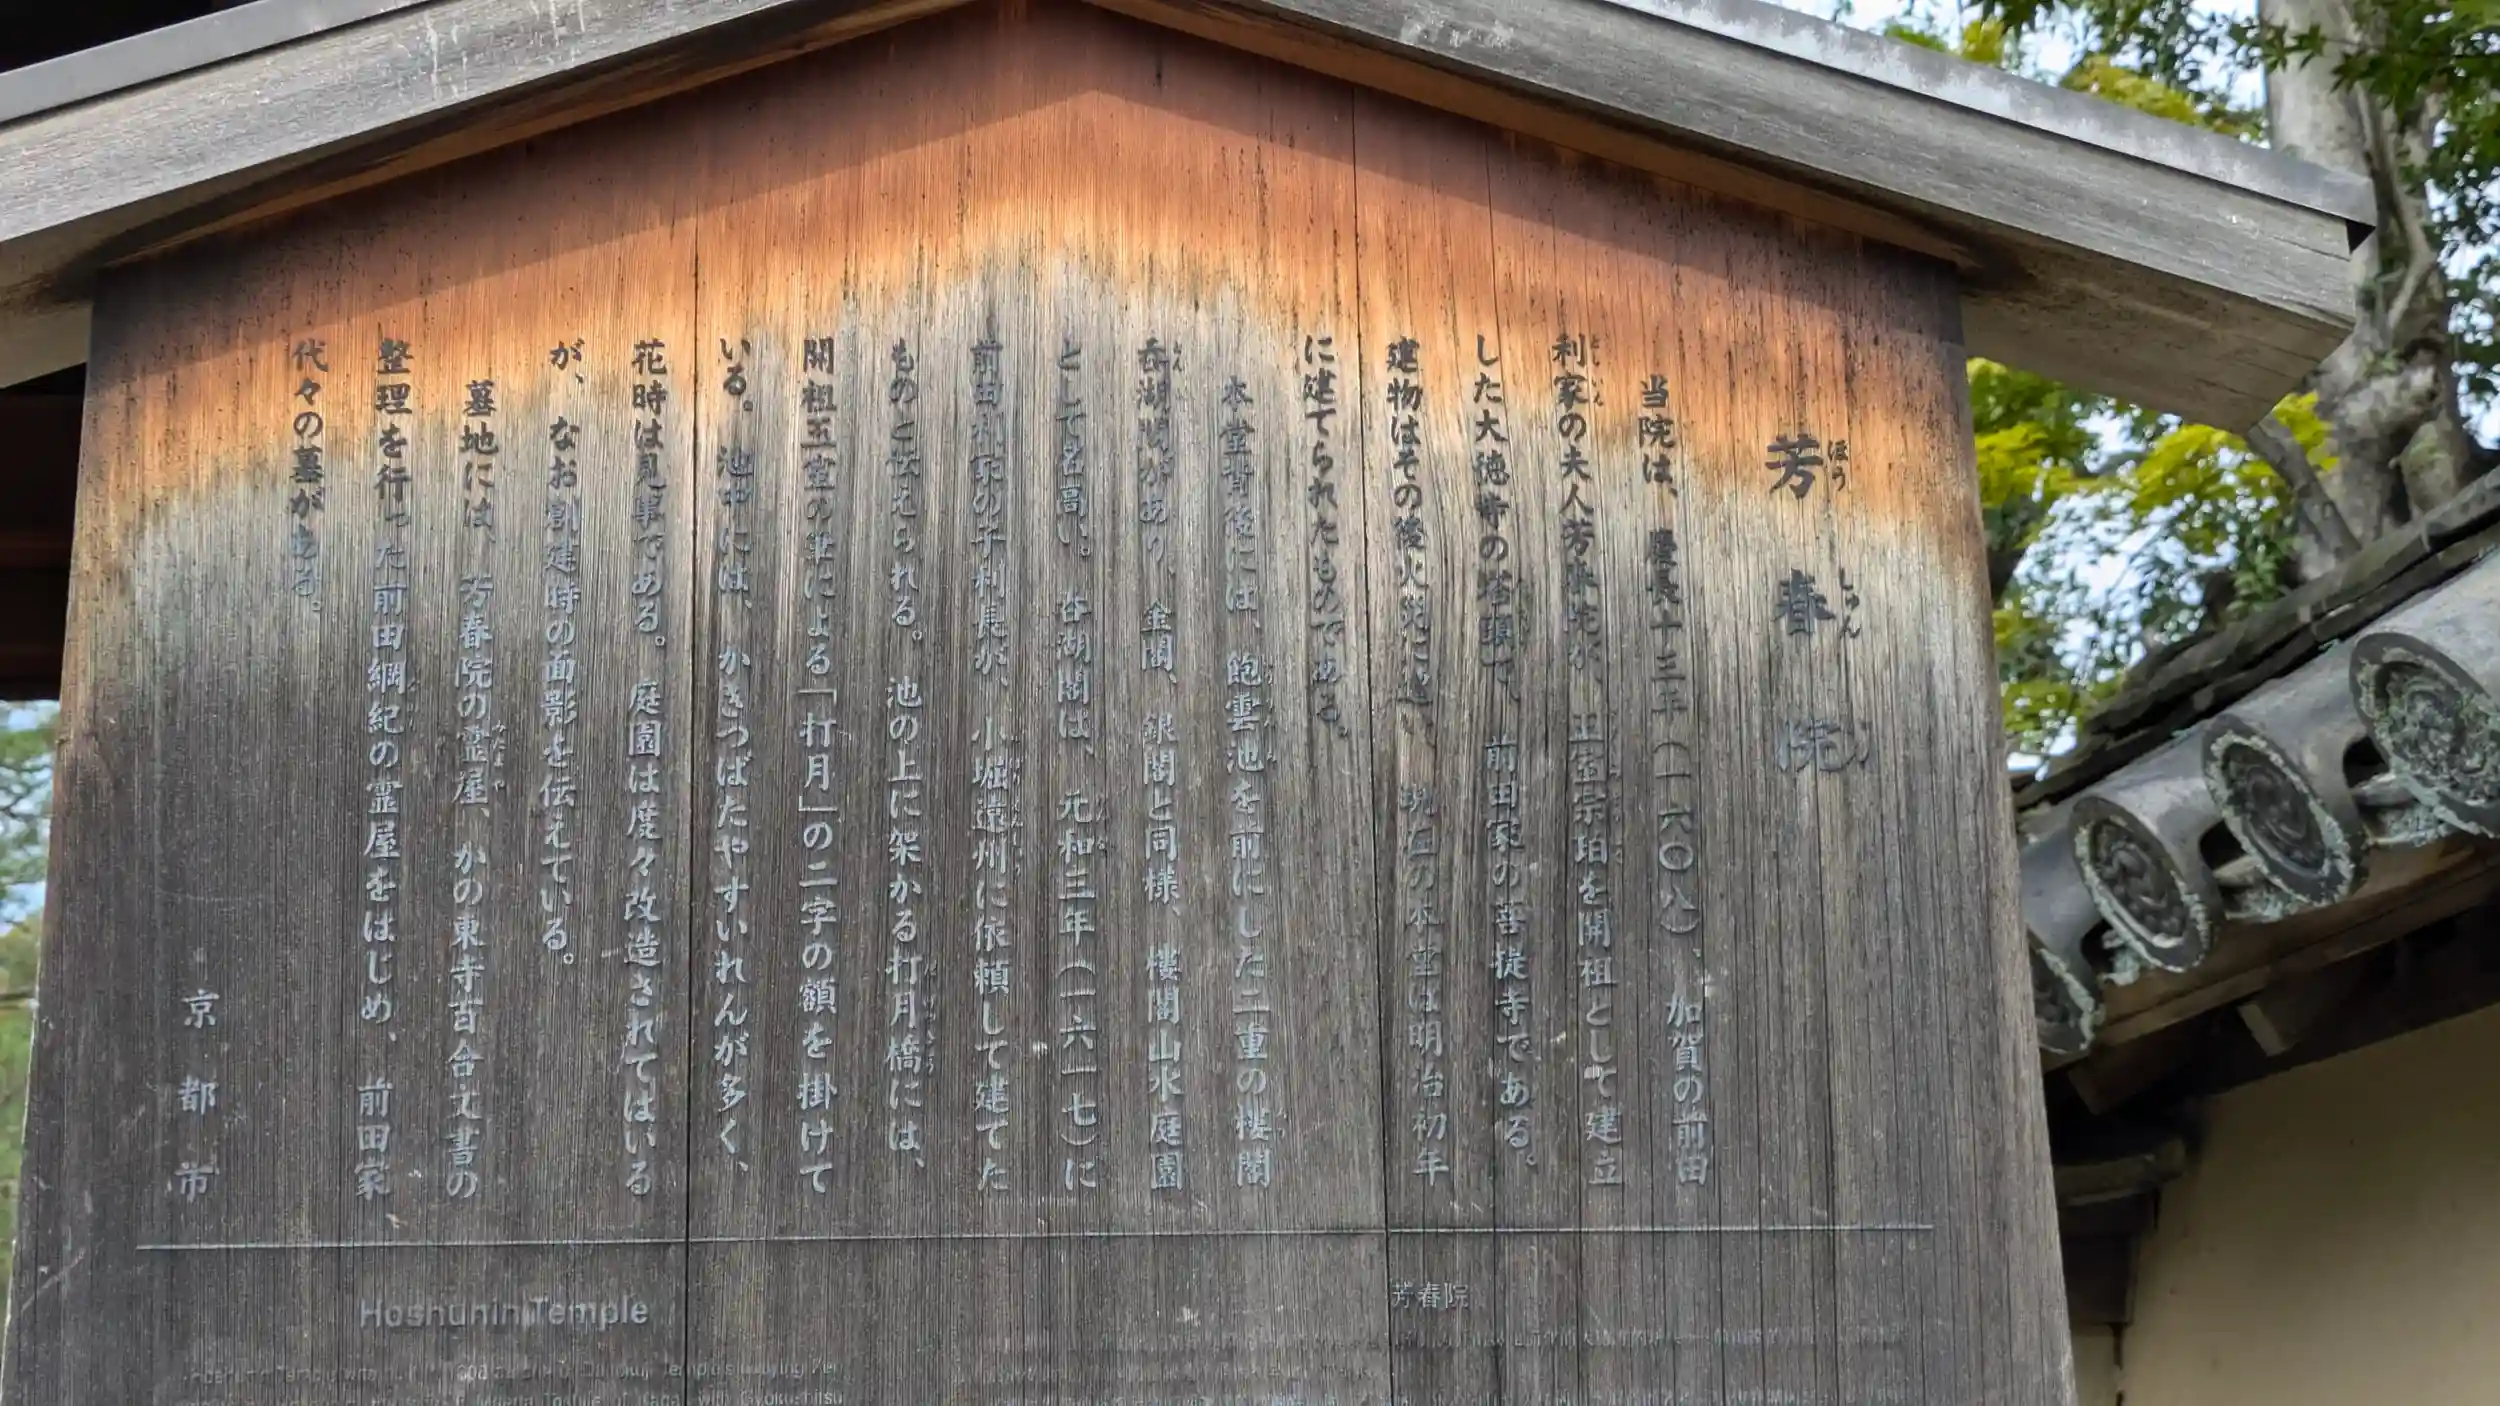 芳春院
ほう しゅん
当院は、慶長十三年(一六〇八)、加賀の前田
利家の夫人芳春院が、玉室宗珀を開祖として建立
した大徳寺の塔頭で、前田家の菩提寺である。
建物はその後火災に遭い、現在の本堂は明治初年
に建てられたものである。
本堂背後には、飽雲池を前にした二重の楼閣
呑湖閣があり、金閣、銀閣と同様、楼閣山水庭園
として名高い。呑湖閣は、元和三年(一六一七)に
前田利家の子利長が、小堀遠州に依頼して建てた
ものと伝えられる。池の上に架かる打月橋には、
開祖玉室の筆による「打月」の二字の額を掛けて
いる。池中には、かきつばたやすいれんが多く、
花時は見事である。庭園は度々改造されてはいる
が、なお創建時の面影を伝えている。
墓地には、芳春院の霊屋、かの東寺百合文書の
整理を行った前田綱紀の霊屋をはじめ、前田家、
代々の墓がある。
京都市
Hoshunin Temple
芳春院